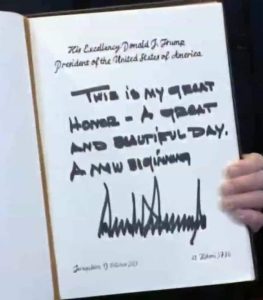 His Excellency Donald J. Trump
President of the United States of America
THIS IS MY GREAT
HONOR - A GREAT
AND BEAUTIFUL DAY.
A NEW BIGINNING
Jerusalem, 13 October